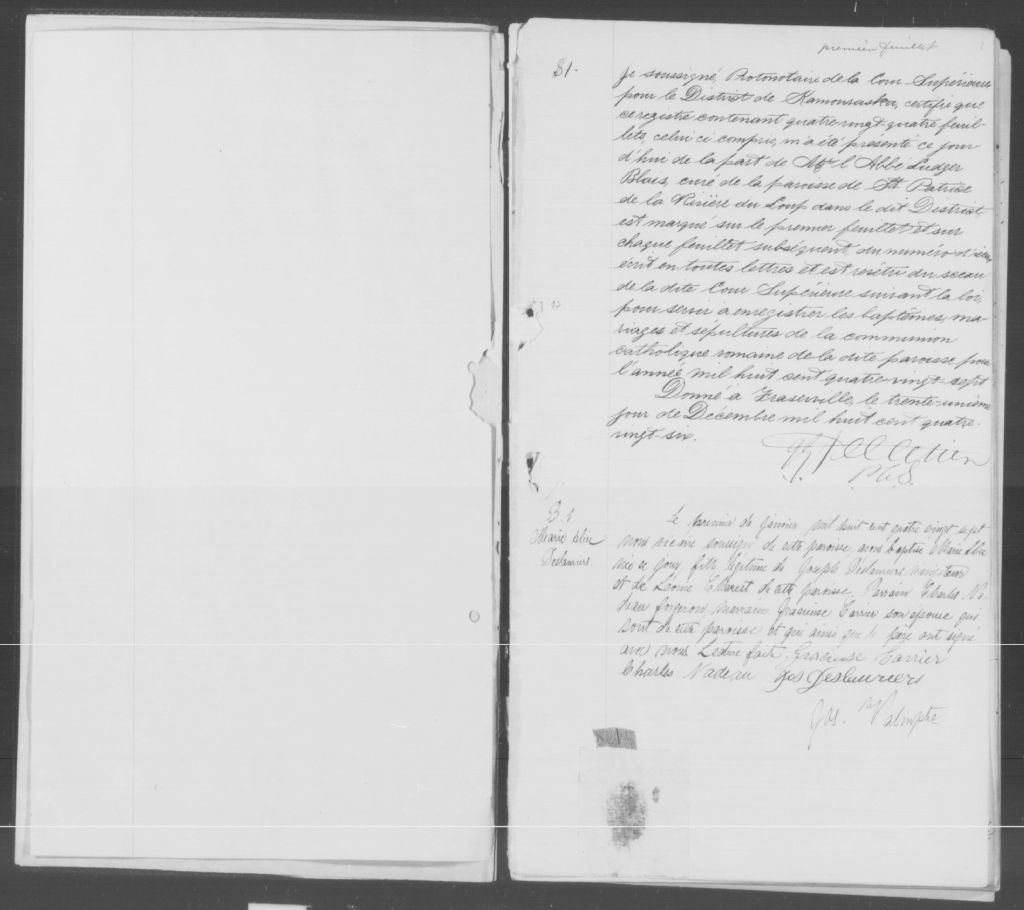 premier feuillet
81.
Je soussigné, Protonotaire de la Cour Supérieure
pour le District de Kamouraska, certifie que
ce registre contenant quatre-vingt-quatre feuil-
lets, celui ci compris, m'a été présenté ce jour
d'hui de la part de l'Abbé Ludger
Blais, curé de la paroisse de St Patrice
de la Rivière du Loup dans le dit District
est marqué sur le premier feuillet et sur
chaque feuillet subséquent du numéro d'icelui
écrit en toutes lettres et est revêtu du sceau
de la dite Cour Supérieure suivant la loi,
pour servir à enregistrer les baptêmes, ma-
riages et sépultures de la communion
catholique romaine de la dite paroisse pour
l'année mil huit cent quatre-vingt-sept
Donné à Fraserville, le trente-unième
jour de Décembre mil huit cent quatre-
vingt-six.
P.C.S.
B. 1
Marie
Deslauriers
Le premier de janvier mil huit cent quatre vingt sept
nous vicaire soussigné de cette paroisse avons baptisé Marie
née ce jour, fille légitime de Joseph Deslauriers, navigateur
et de de cette paroisse. Parrain Charles Na-
deau forgeron marraine Gracieuse Carrier son épouse qui
sont de cette paroisse et qui ainsi que le père ont signé
avec nous. Lecture faite. Gracieuse Carrier
Charles Nadeau Jos Deslauriers
Jos.